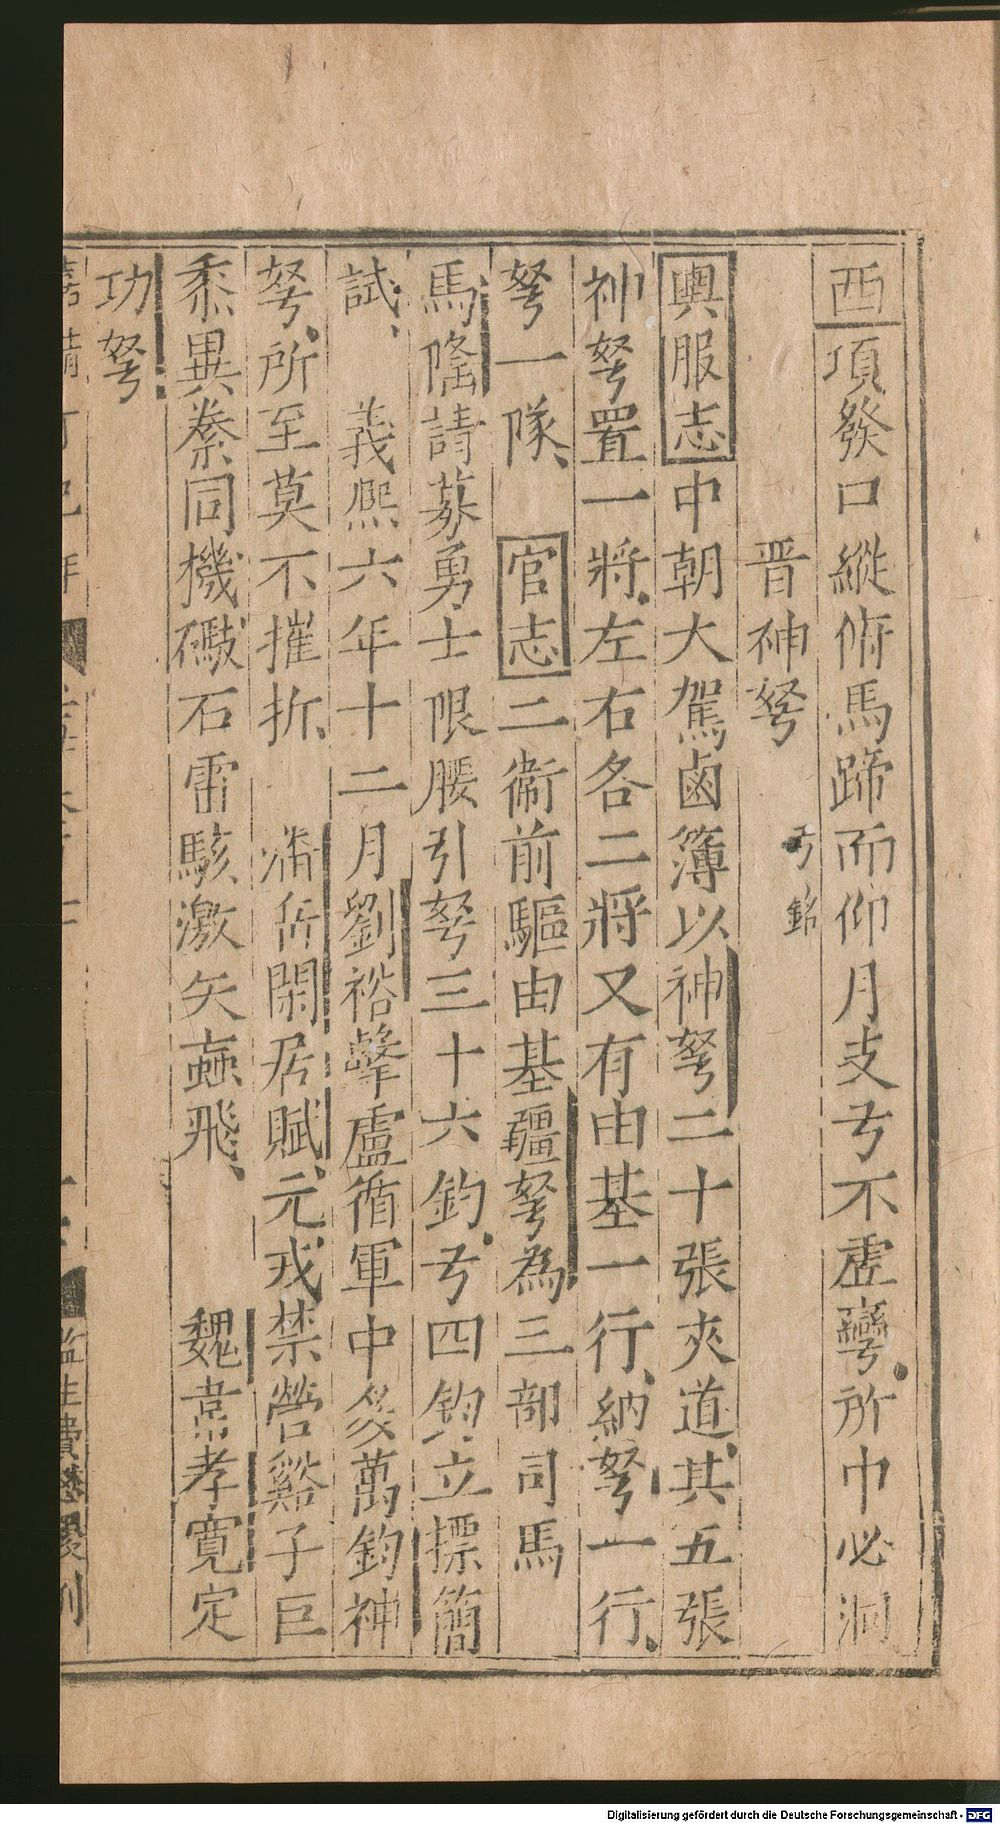 酉項發口縱俯馬蹄而仰月支弓不虛彎所中必洞
晉神弩 弓銘
輿服志中朝大駕鹵簿以神弩二十張夾道其五張
神弩置一將左右各二將又有由基一行納弩一行
弩一隊 官志二衛前驅由基彊弩為三部司馬
馬隆請募勇士限腰引弩三十六鈞弓四鈞立摽簡
試 義熙六年十二月劉裕擊盧循軍中多萬鈞神
弩所至莫不摧折 潘岳閑居賦元戎禁營谿子巨
黍異絭同機礮石雷駭激矢蝱飛 魏韋孝寬定
功弩
監生費懋
Digitalisierung gefördert durch die Deutsche Forschungsgemeinschaft - DFG